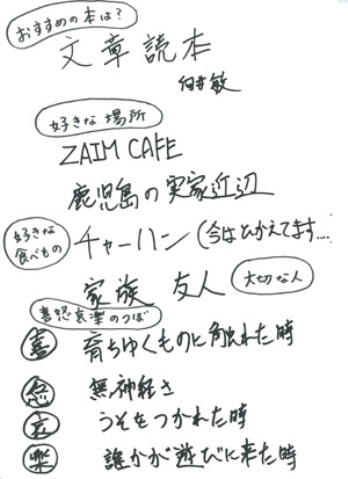 おすすめの本は?
文章読本
向井敏
好きな場所
ZAIM CAFE
鹿児島の実家近辺
好きな食べもの
チャーハン(今はひかえてます....
家族 友人 大切な人
喜怒哀楽のつぼ
喜 育ちゆくものに触れた時
怒 無神経さ
哀 うそをつかれた時
楽 誰かが遊びに来た時